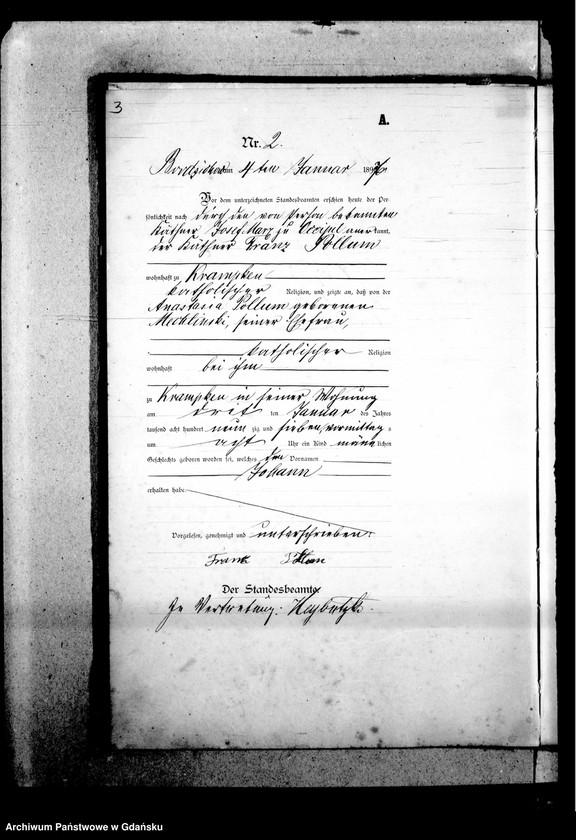 3
A.
Nr. 2.
am 4 ten Januar 1897
Vor dem unterzeichneten Standesbeamten erschien heute der Per-
sönlichkeit nach durch den von Person bekannten
Käthner Josef zu anerkannt,
der Käthner Franz Pollum
wohnhaft zu Krampken
katholischer Religion, und zeigte an, daß von der
Anastasia Pollum geborenen
seiner Ehefrau,
katholischer Religion
wohnhaft bei ihm
zu Krampken in seiner Wohnung
am drei ten Januar des Jahres
tausend acht hundert neun zig und sieben vormittag s
um acht Uhr ein Kind männlichen
Geschlechts geboren worden sei, welches den Vornamen
Johann
erhalten habe
Vorgelesen, genehmigt und unterschrieben.
Franz
Der Standesbeamte
In Vertretung:
Archiwum Państwowe w Gdańsku